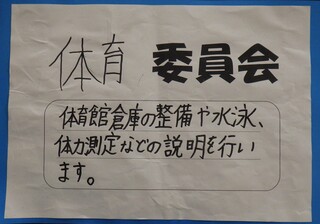 体育 委員会
体育館倉庫の整備や水泳、
体力測定などの説明を行い
ます。